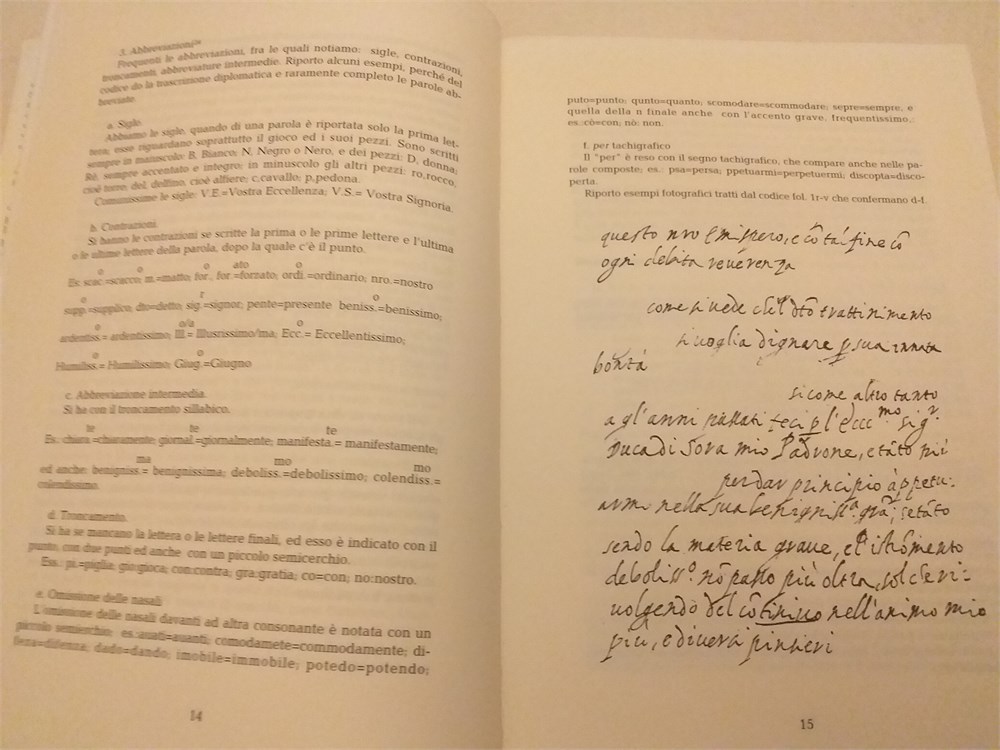 3. Abbreviazioni
Frequenti le abbreviazioni, fra le quali notiamo: sigle, contrazioni,
troncamenti, abbreviature intermedie. Riporto alcuni esempi, perché del
codice do la trascrizione diplomatica e raramente completo le parole ab-
breviate.
a. Sigle.
Abbiamo le sigle, quando di una parola è riportata solo la prima let-
tera; esse riguardano soprattutto il gioco ed i suoi pezzi. Sono scritti
sempre in maiuscolo: B, Bianco; N, Negro o Nero, e dei pezzi: D, donna;
Rè, sempre accentato e integro; in minuscolo gli altri pezzi: ro,rocco,
cioè torre, del, delfino, cioè alfiere; c,cavallo; p,pedona.
Comunissime le sigle: V.E.=Vostra Eccellenza; V.S.= Vostra Signoria.
b. Contrazioni.
Si hanno le contrazioni se scritte la prima o le prime lettere e l'ultima
o le ultime lettere della parola, dopo la quale c'è il punto.
o o o ato o
Es: scac.=scacco; m.=matto; for., for =forzato; ordi.=ordinario; nro.=nostro
o r o
supp.=supplico; dto=detto; sig.=signor; pente=presente beniss.=benissimo;
o o/a o
ardentiss.= ardentissimo; Ill.= Illusrissimo/ma; Ecc.= Eccellentissimo;
o o
Humiliss.= Humilissimo; Giug.=Giugno
c. Abbreviazione intermedia.
Si ha con il troncamento sillabico.
te te te
Es.: chiara.=chiaramente; giornal.=giornalmente; manifesta.= manifestamente;
ma mo mo
ed anche: benigniss.= benignissima; deboliss.=debolissimo; colendiss.=
colendissimo.
d. Troncamento.
Si ha se mancano la lettera o le lettere finali, ed esso è indicato con il
punto, con due punti ed anche con un piccolo semicerchio.
Ess.: pi.=piglia; gio:gioca; con:contra; gra:gratia; co=con; no:nostro.
e. Omissione delle nasali
L'omissione delle nasali davanti ad altra consonante è notata con un
piccolo semicerchio: es.:auati=auanti; comodamete=commodamente; di-
feza=difenza; dado=dando; imobile=immobile; potedo=potendo;
14
puto=punto; qunto=quanto; scomodare=scommodare; sepre=sempre, e
quella della n finale anche con l'accento grave, frequentissimo,:
es.:cò=con; nò: non.
f. per tachigrafico
Il "per" è reso con il segno tachigrafico, che compare anche nelle pa-
role composte; es.: psa=persa; ppetuarmi=perpetuermi; discopta=disco-
perta.
Riporto esempi fotografici tratti dal codice fol. 1r-v che confermano d-f.
questo nro Emispero, e cõ tal fine cõ
ogni debita reuerenza
come si uede che'l dtõ trattinimento
si uoglia dignare p sua innata
bontà
sicome altro tanto
a gl'anni passati feci p l'Ecc.mo sigr.
Duca di Sora mio Padrone, e tãto più
per dar principio à ppetu-
armi nella sua benigniss.a gra;, setãto
sendo la materia graue, e l'istromento
deboliss.o nõ passo più oltra, sol che ri-
uolgendo del cõtinuo nell'animo mio
più, e diuersi pinsieri
15